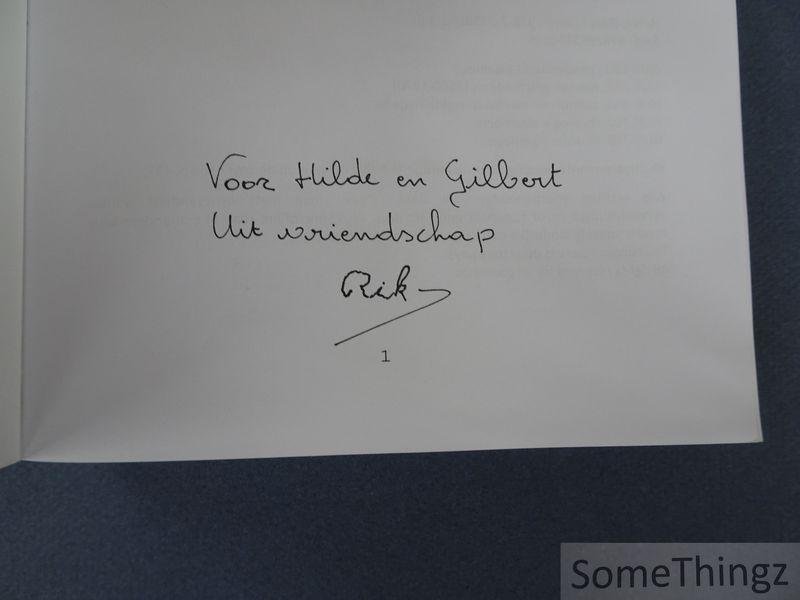 Voor Hilde en Gilbert
Uit vriendschap
Rik
1
SomeThingz